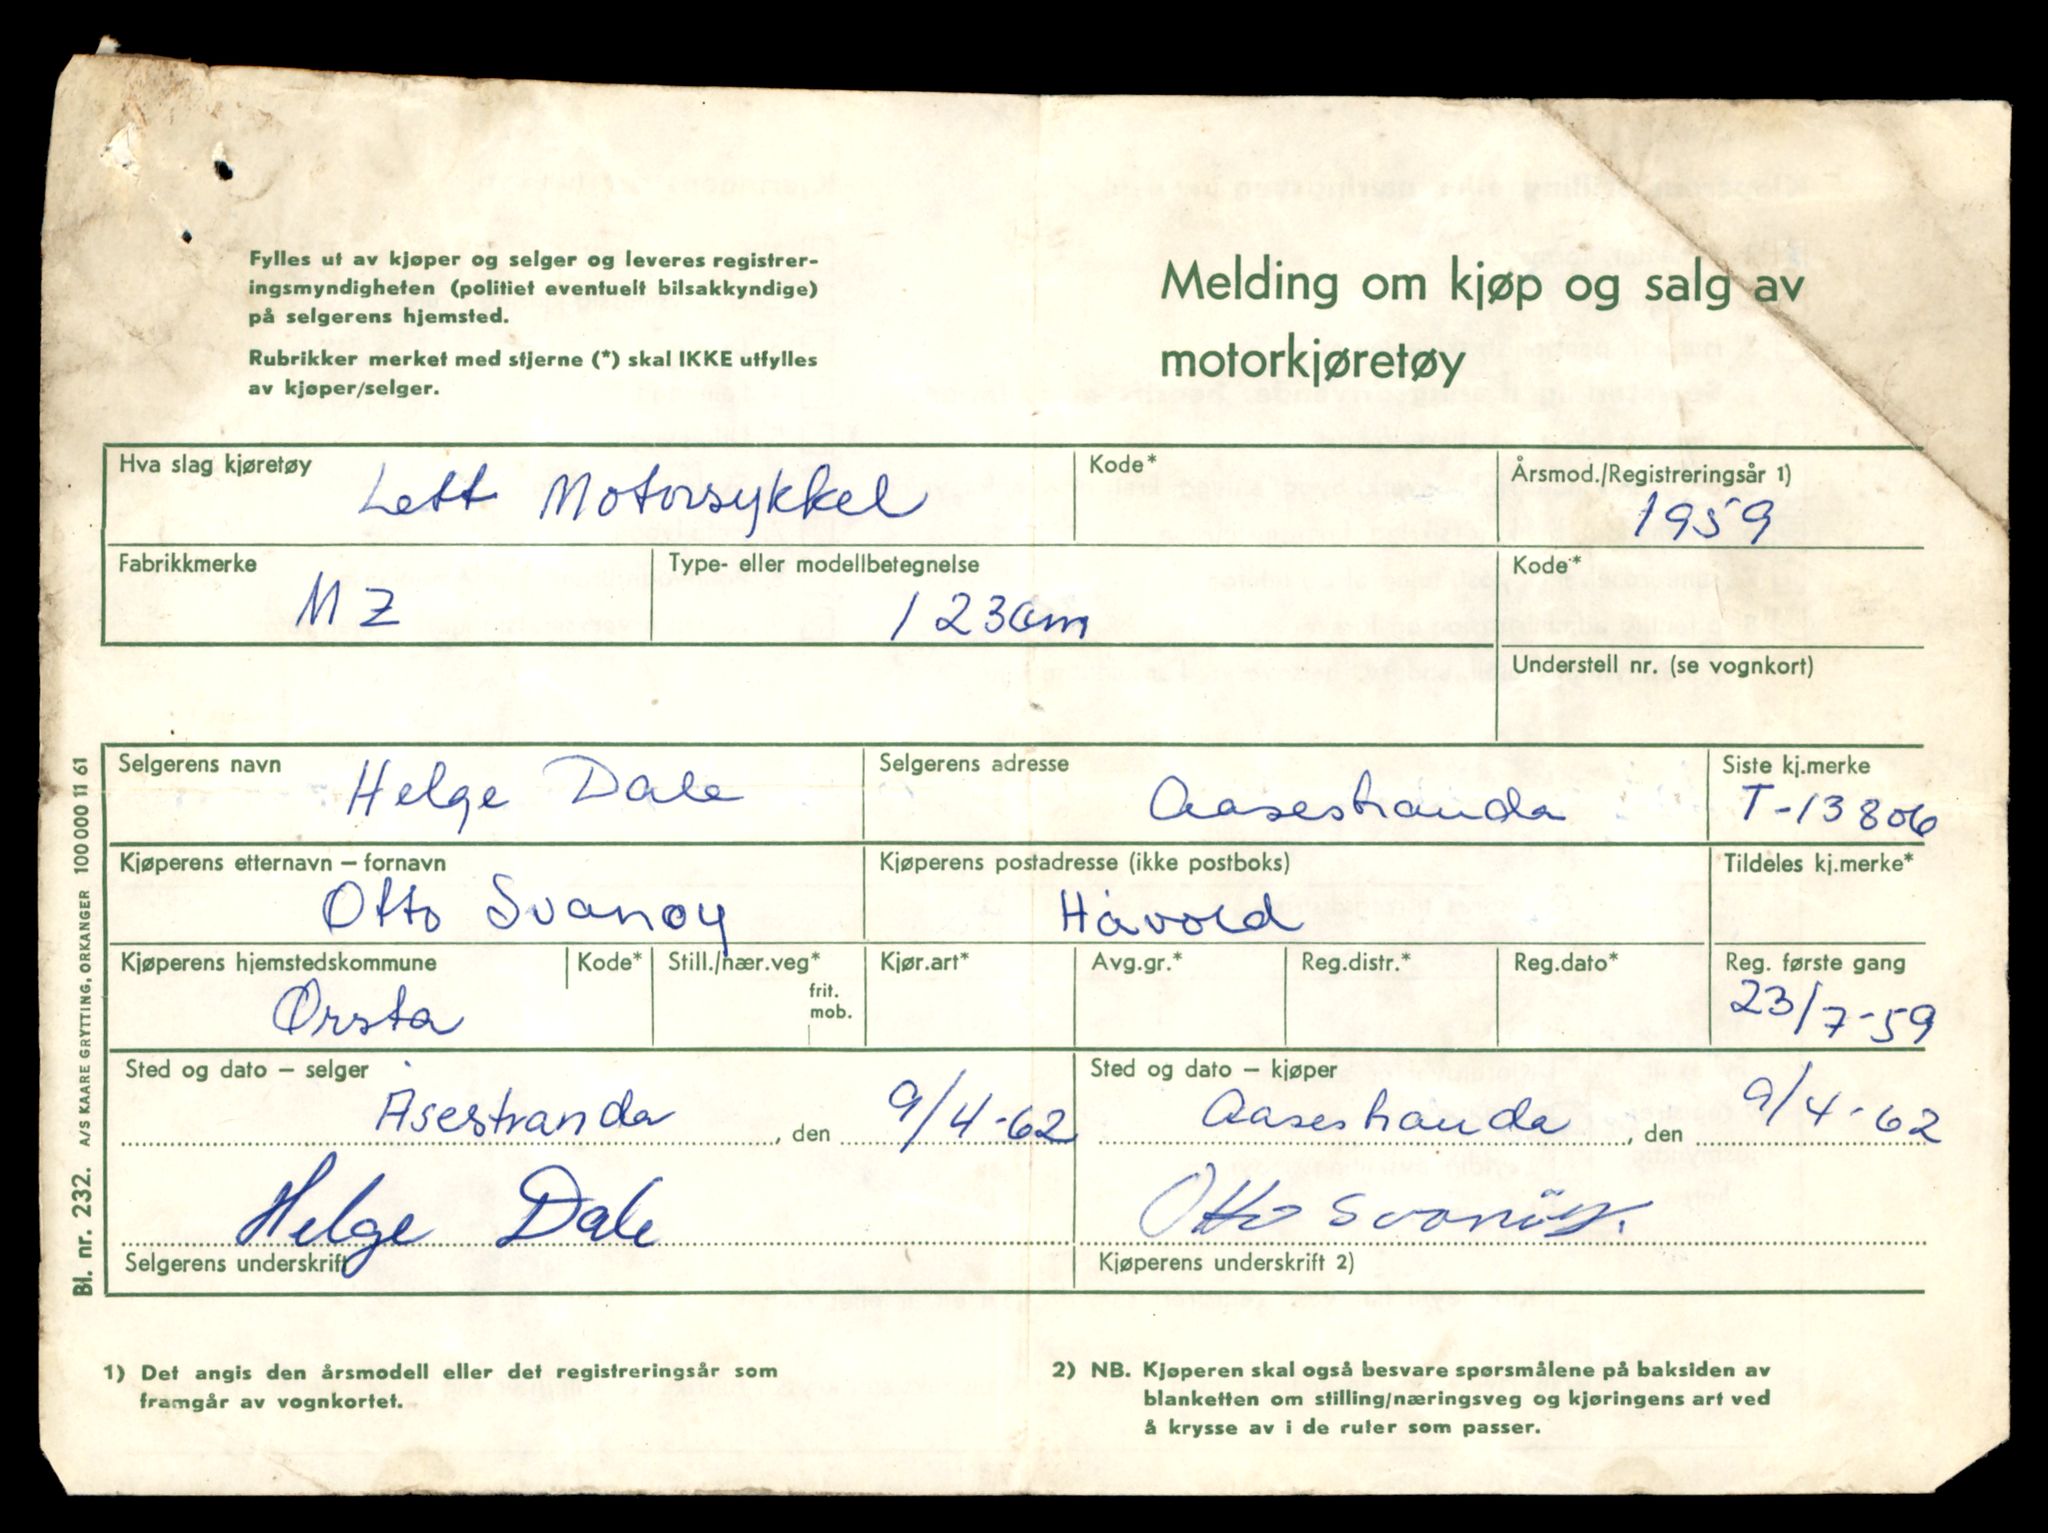 Fylles ut av kjøper og selger og leveres registrer-
ingsmyndigheten (politiet eventuelt bilsakkyndige)
på selgerens hjemsted.
Rubrikker merket med stjerne (*) skal IKKE utfylles
av kjøper/selger.
Melding om kjøp og salg av
motorkjøretøy
Hva slag kjøretøy Kode* Årsmod./Registreringsår 1)
Lett Motorsykkel 1959
Fabrikkmerke Type- eller modellbetegnelse Kode*
MZ 123ccm
Understell nr. (se vognkort)
Selgerens navn Selgerens adresse Siste kj.merke
Helge Dale Aasestranda T-13806
Kjøperens etternavn – fornavn Kjøperens postadresse (ikke postboks) Tildeles kj.merke*
Otto Svanøy Håvold
Kjøperens hjemstedskommune Kode* Still./nær.veg* Kjør.art* Avg.gr.* Reg.distr.* Reg.dato* Reg. første gang
frit.
mob.
Ørsta 23/7-59
Sted og dato – selger Sted og dato – kjøper
Åsestranda, den 9/4-62 Aasestranda, den 9/4-62
Helge Dale Otto Svanöy.
Selgerens underskrift Kjøperens underskrift 2)
1) Det angis den årsmodell eller det registreringsår som
framgår av vognkortet.
2) NB. Kjøperen skal også besvare spørsmålene på baksiden av
blanketten om stilling/næringsveg og kjøringens art ved
å krysse av i de ruter som passer.
Bl. nr. 232. A/S KAARE GRYTTING, ORKANGER 100 000 11 61